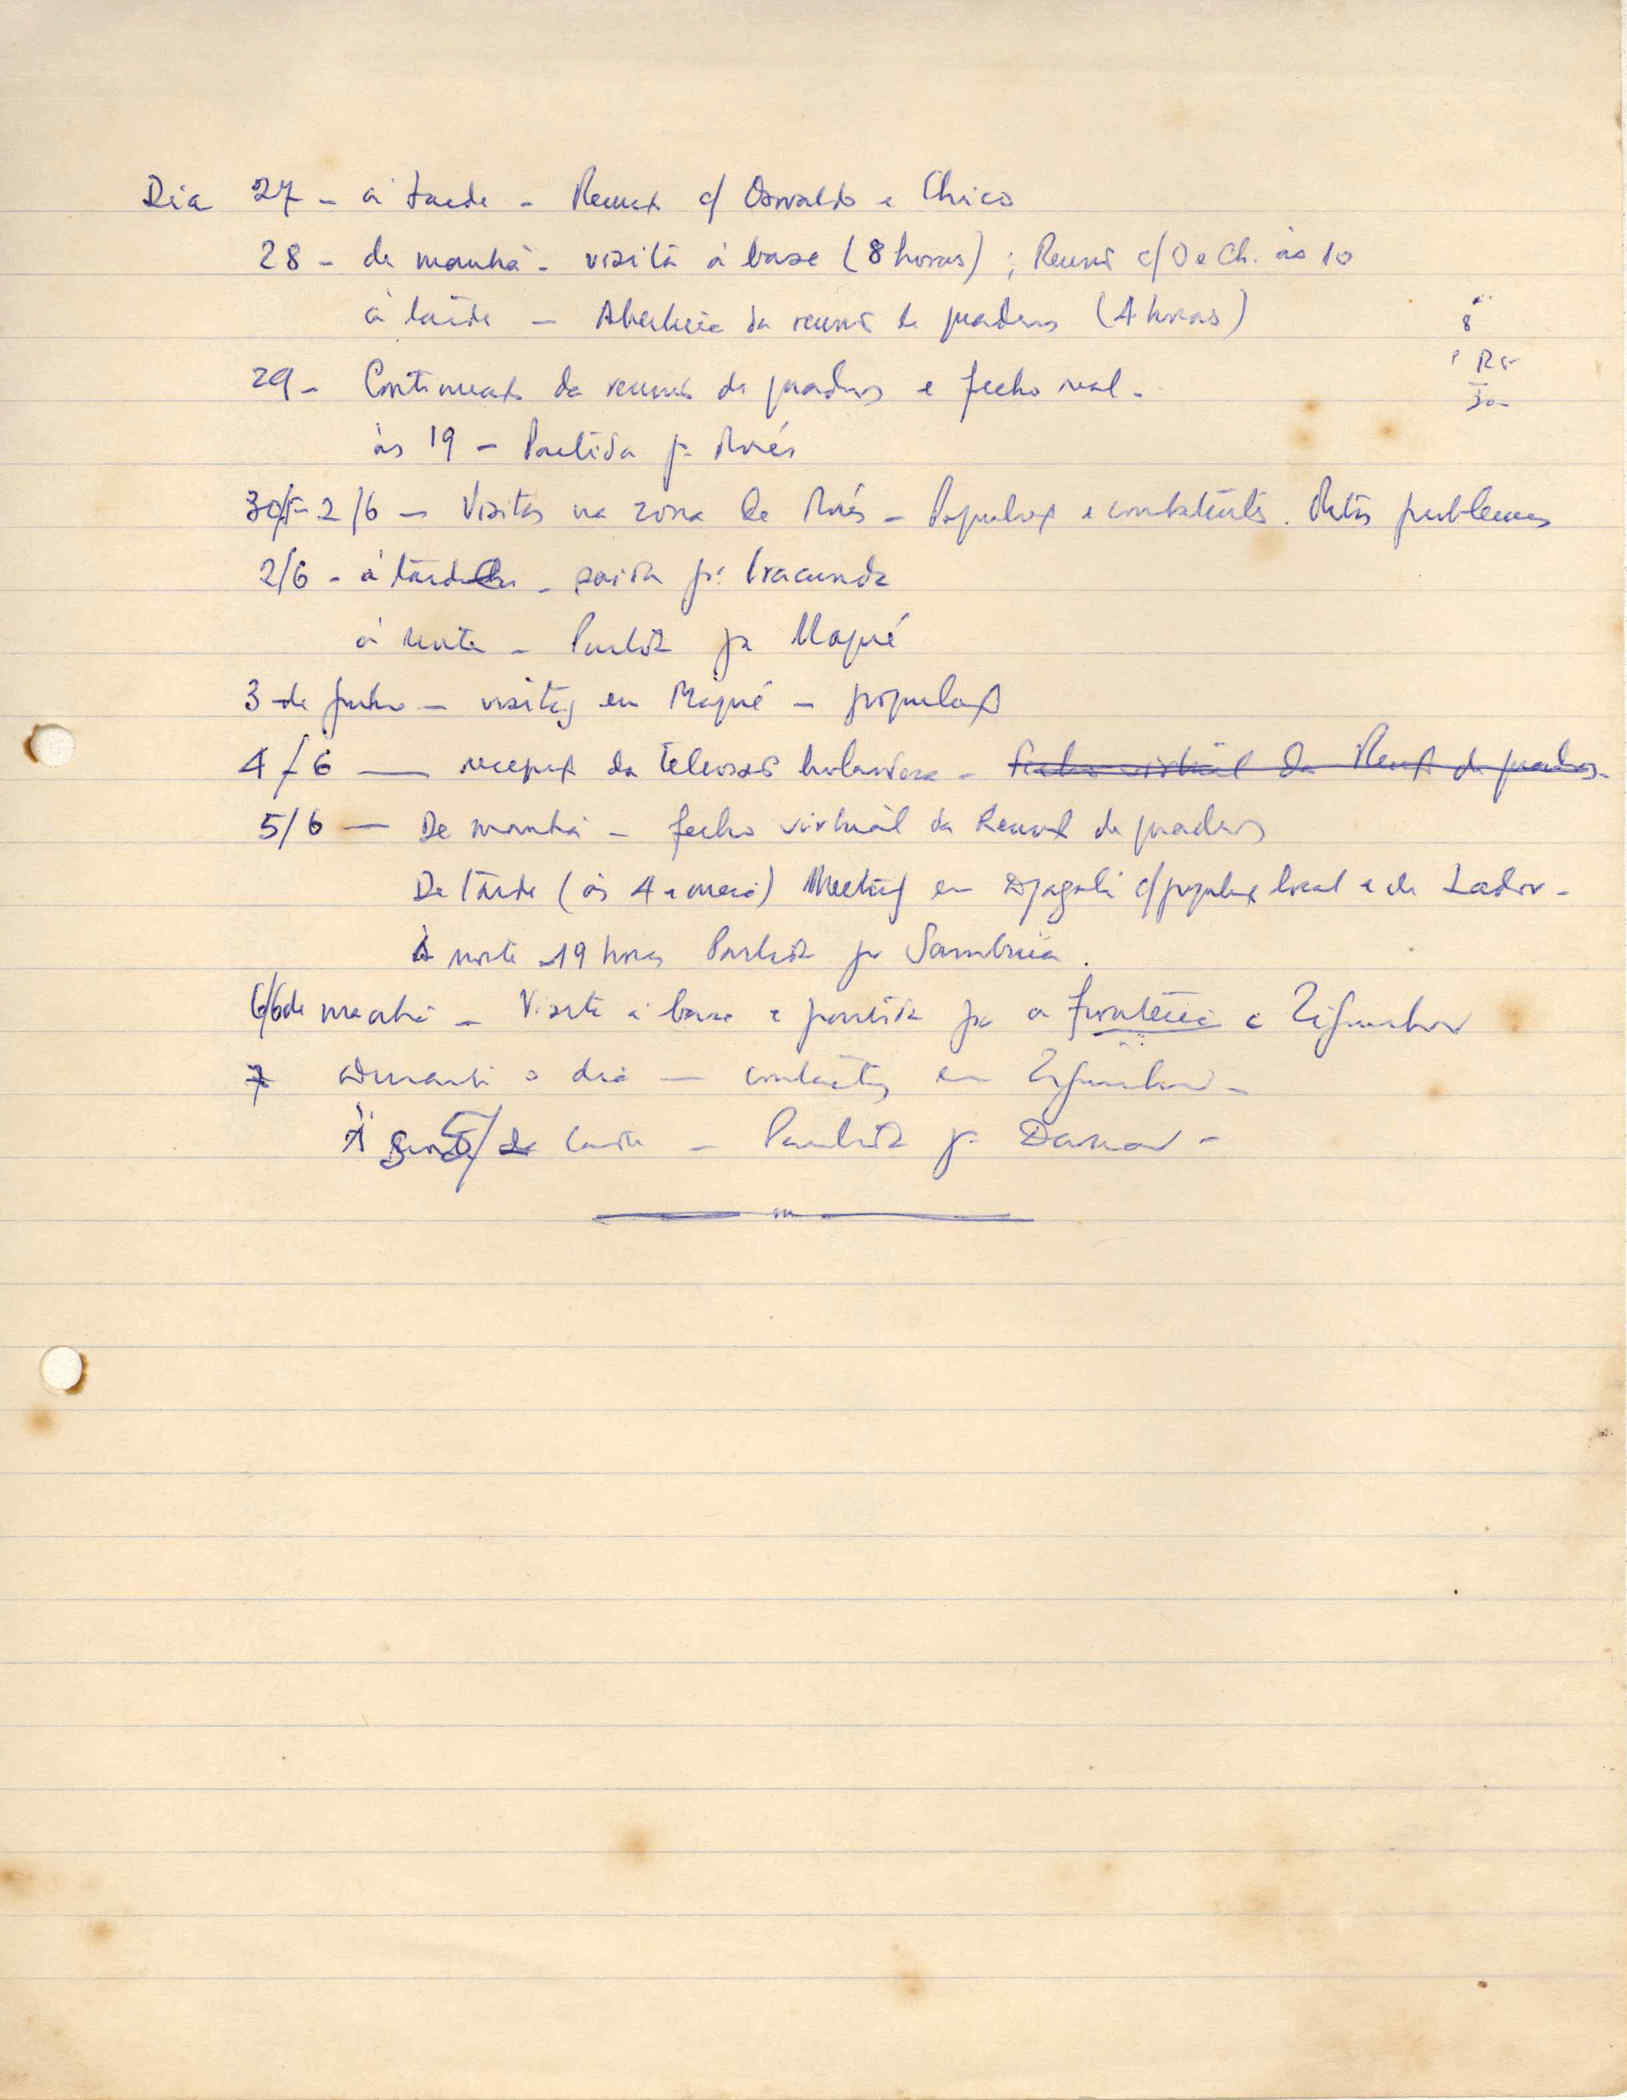 Dia 27 - à tarde - Reunião c/ Osvaldo e Chico
28 - de manhã - visita à base (8 horas) ; Reunião c/ O e Ch. às 10
à tarde - Abertura da reunião de quadros (4 horas)
8
29 - Continuação da reunião de quadros e fecho real -
às 19 - Partida p. Morés
30/5 - 2/6 - Visitas na zona de Morés - População e combatentes. problemas
2/6 - à tarde - saída p. Iracunda
à noite - Partida pa Maqué
3 de junho - visitas em Maqué - população
4/6 - recepção da televisão holandesa - fecho virtual da Reunião de quadros -
5/6 - De manhã - fecho virtual da Reunião de quadros
De tarde (às 4 e meia) Meeting em Djagali c/ população local e de -
À noite - 19 horas Partida pa Sambuia.
6/6 de manhã - Visita à base e partida pa a fronteira e Ziguinchor
7 durante o dia - contactos em Ziguinchor -
tarde - Partida p. Dakar -